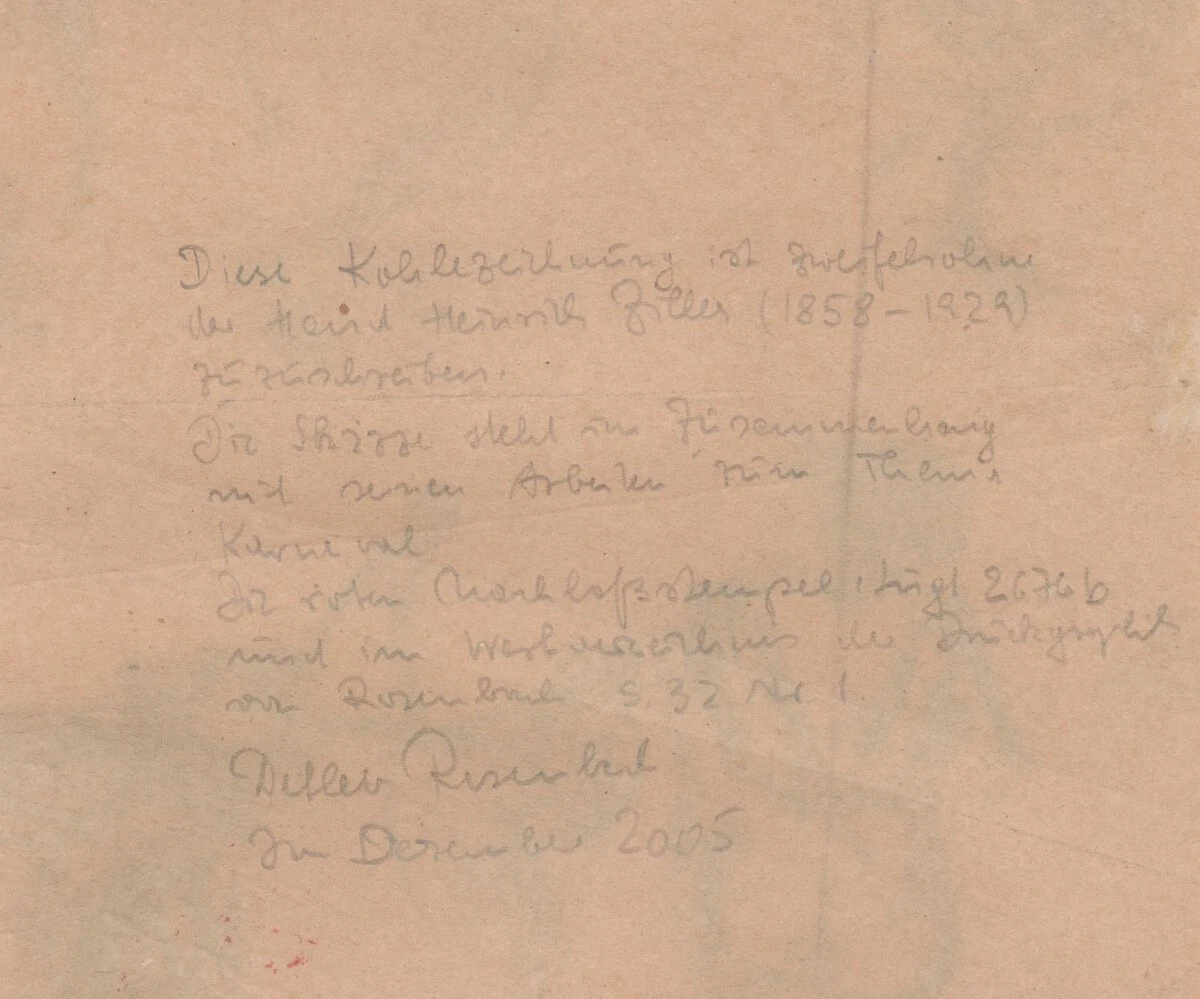 Diese Kohlezeichnung ist zweifelsohne
der Hand Heinrich Zilles (1858 – 1929)
zuzuschreiben.
Die Skizze steht im Zusammenhang
mit seinen Arbeiten zum Thema
Karneval
roten Nachlaßstempel Lugt 2676b
und im Werkverzeichnis der Druckgraphik
von Rosenbach S. 32 Nr 1.
Detlev Rosenbach
Im Dezember 2005